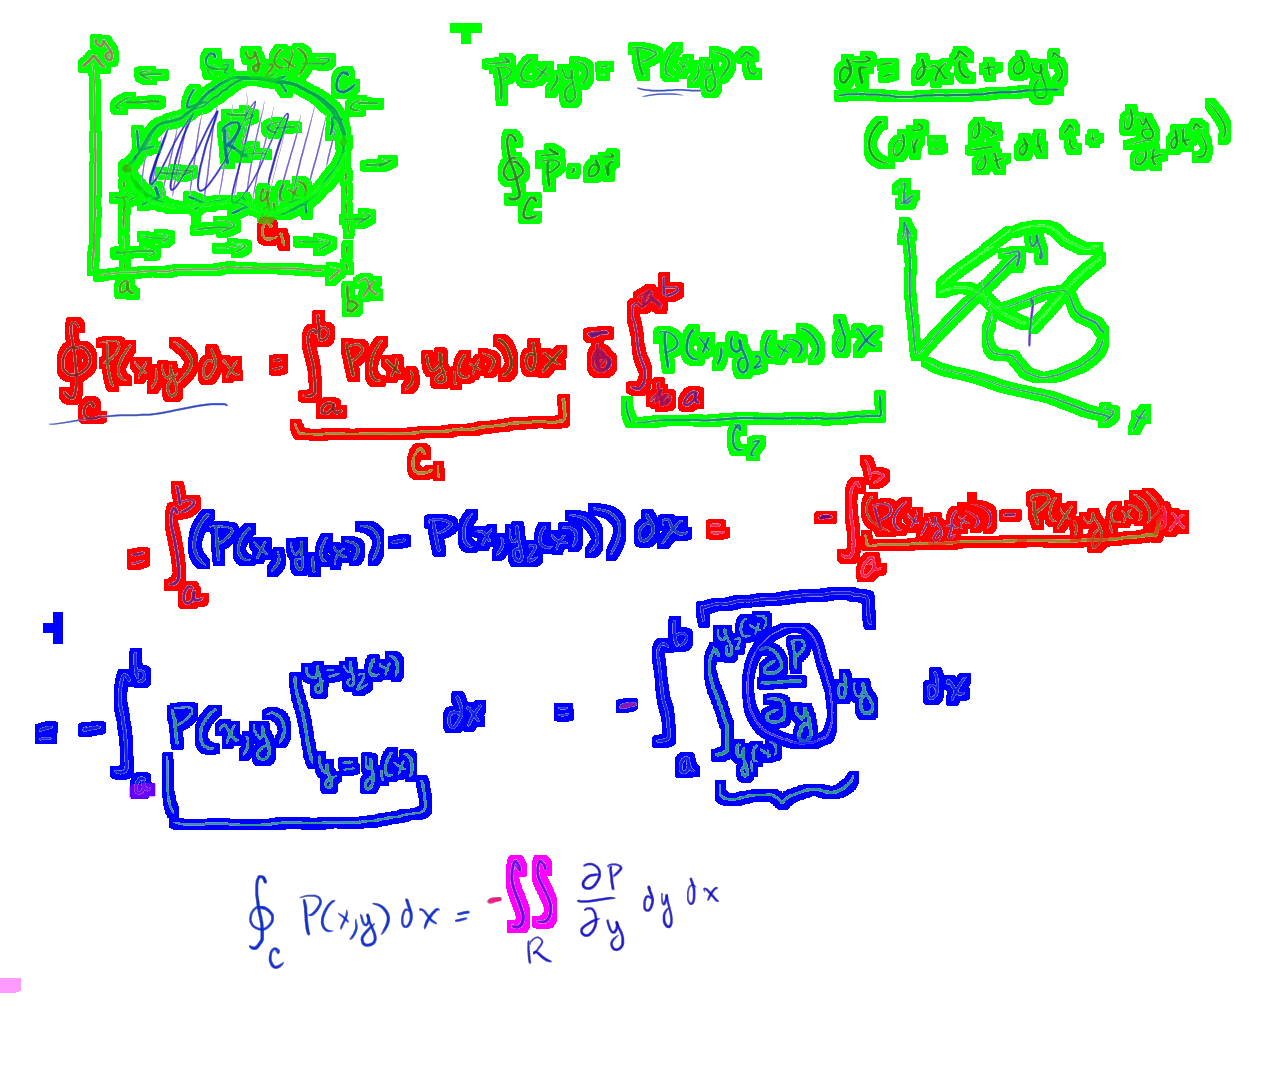 y C₂ y₂(x) C
R
y₁(x)
C₁
a b x
P⃗(x,y) = P(x,y) î
∮_C P⃗ · dr⃗
dr⃗ = dx î + dy ĵ
(dr⃗ = dx/dt dt î + dy/dt dt ĵ)
z y x
∮_C P(x,y) dx = ∫_a^b P(x, y₁(x)) dx − ∫_a^b P(x, y₂(x)) dx
C₁ C₂
= ∫_a^b (P(x, y₁(x)) − P(x, y₂(x))) dx = − ∫_a^b (P(x, y₂(x)) − P(x, y₁(x))) dx
= − ∫_a^b P(x,y) |_{y=y₁(x)}^{y=y₂(x)} dx = − ∫_a^b ∫_{y₁(x)}^{y₂(x)} ∂P/∂y dy dx
∮_C P(x,y) dx = − ∬_R ∂P/∂y dy dx